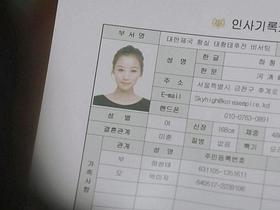 인사기록
부서명 대한제국 황실 태황태후전 비서팀
성명 한글
한문
주소 서울특별시 금천구
E-mail Skyhigh@koreaempire.kg
핸드폰 010-0763-0891
성별 여 신장 168cm 체중 48
결혼관계 미혼 질병 없음
가족사항
관계 성명 주민등록번호
부 631105-1351611
모 박미자 640517-2039106